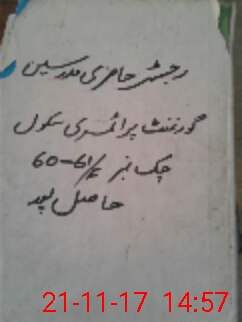 رجسٹر حاضری مدرسین
گورنمنٹ پرائمری سکول
چک نمبر 60-61/
حاصل پور
21-11-17 14:57